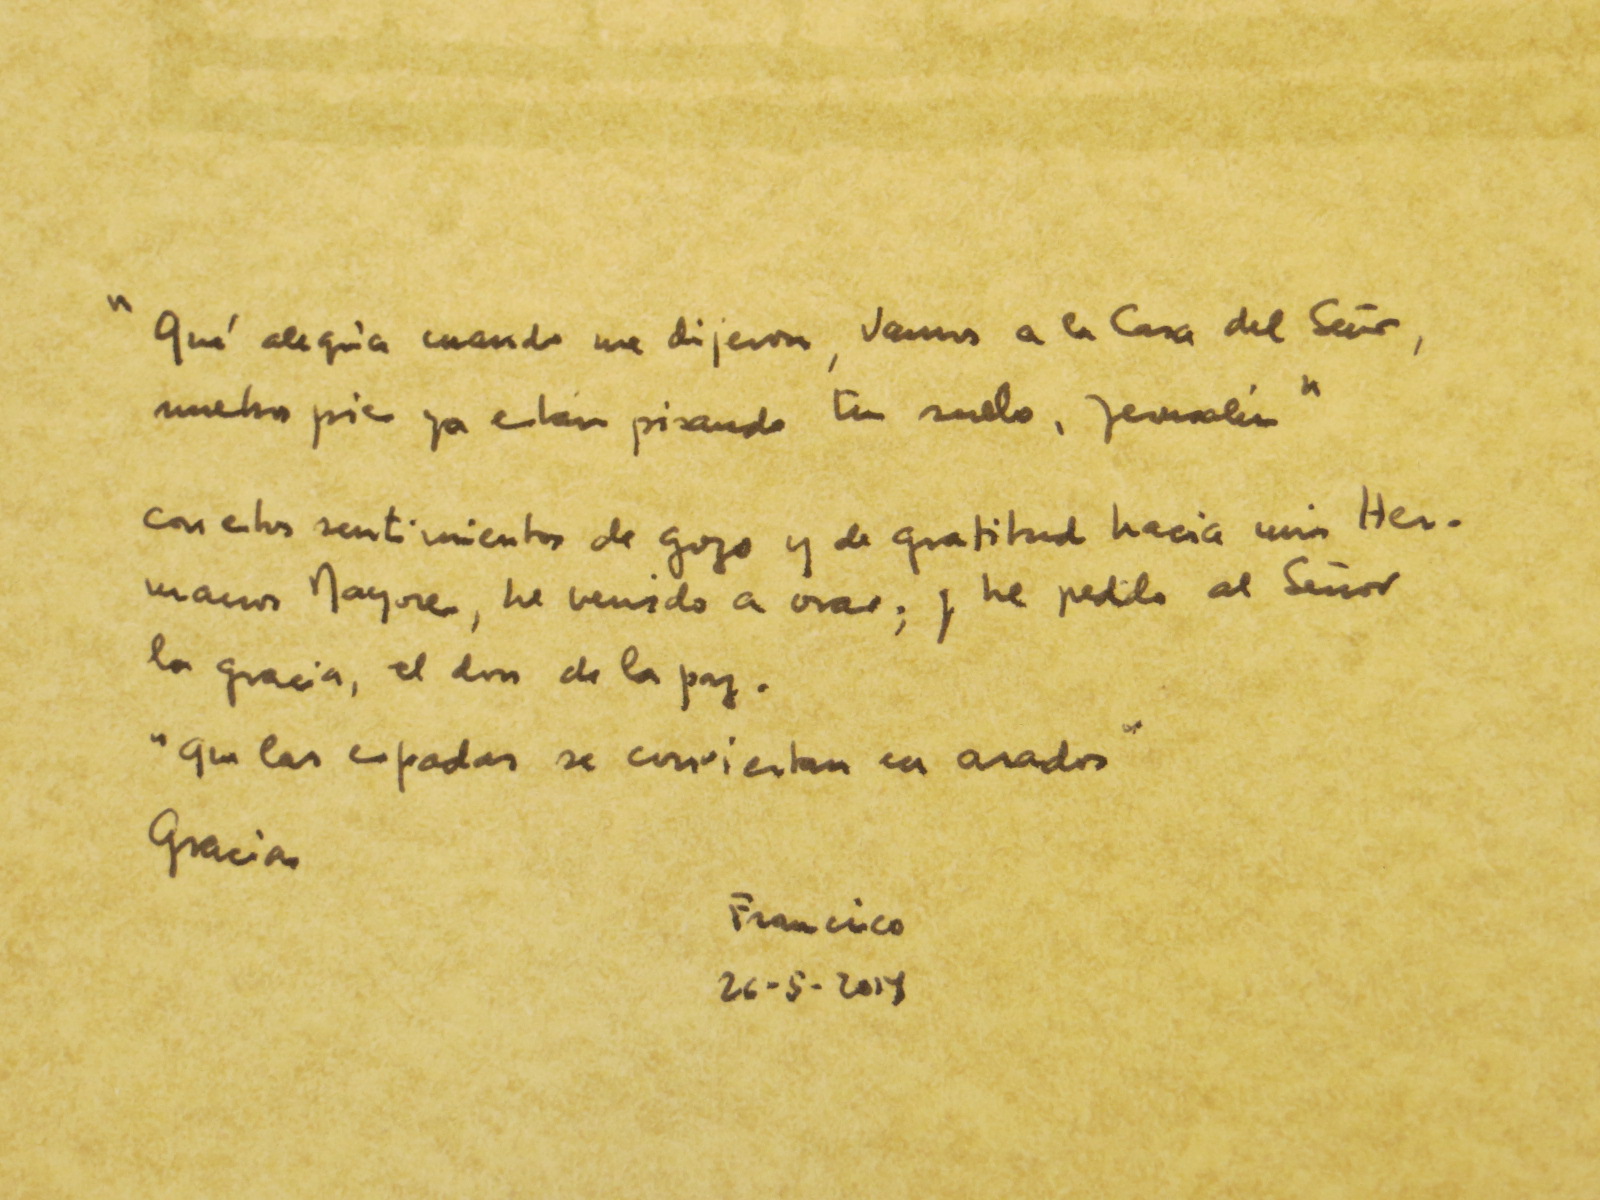 "Qué alegría cuando me dijeron, Vamos a la Casa del Señor,
nuestros pies ya están pisando tu suelo, Jerusalén"
con estos sentimientos de gozo y de gratitud hacia mis Her-
manos Mayores, he venido a orar; y he pedido al Señor
la gracia, el don de la paz.
"que las espadas se conviertan en arados"
Gracias
Francisco
26-5-2014